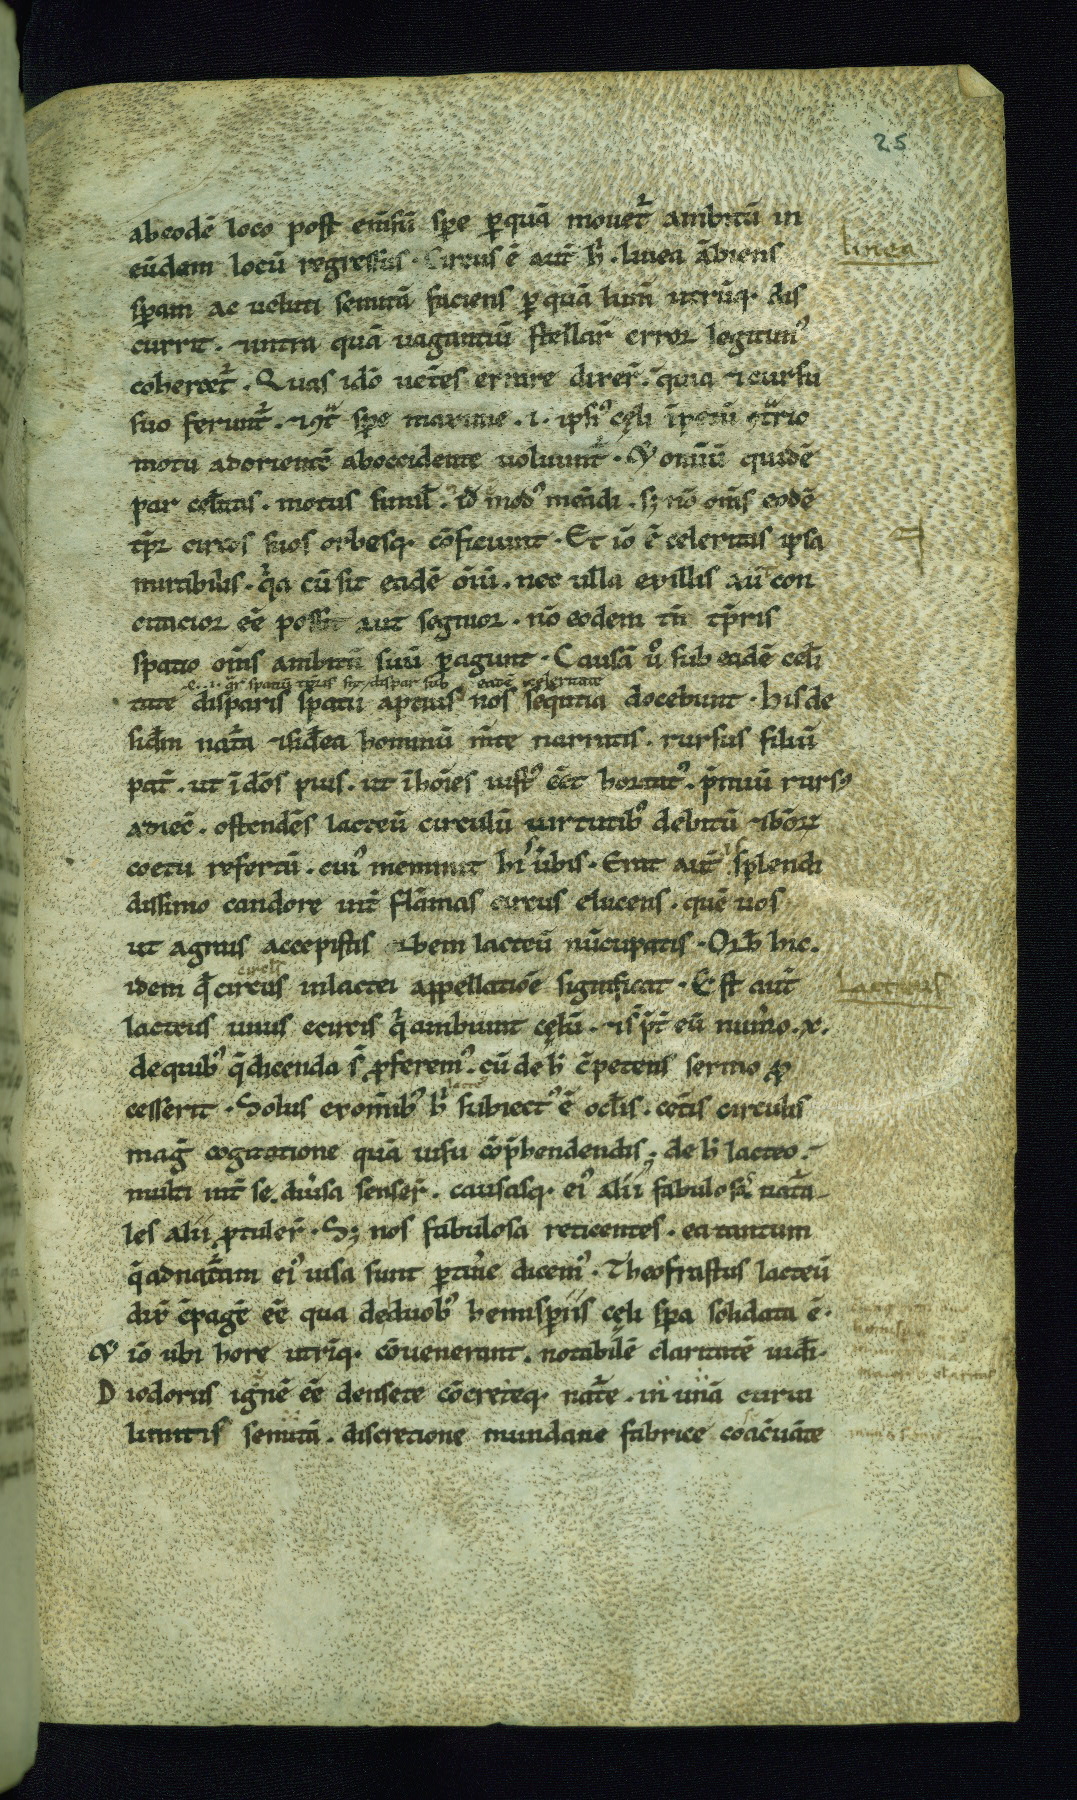 25
ab eodē loco post emēsū spe p quā mouet̄ ambitū in
linea
eūdam locū regressus. Circus ē aūt h̄. linea ābiens
spam ac ueluti semitā faciens p quā lum̄ utrūq. dis
currit. & intra quā uagantiū stellar̄ error legitim᾽
cohercet̄. Quas idō uet̄es errare dixer̄. quia & cursu
suo ferunt̄. & 9t̄ spe maxime. i. ipsi᾽ cęli īpetū 9t̄rio
motu ad orientē ab occidente uoluunt̄. & omīū quidē
par celitas. motus simil̄. id mod᾽ meādi. s; nō om̄s eodē
tp̄r circos suos orbesq. cōficiunt. Et iō ē celeritas ipsa
mirabilis. q̄a cū sit eadē oīū. nec ulla ex illis aū con
citacior eē possit aut segnior. nō eodem tn̄ tp̄ris
spatio om̄s ambitū suū pagunt. Causā ů sub eadē celi
tate disparis spatii aptius nos seq̄ntia docebunt. his de
sidm̄ nat̄a & sidea hominū m̄te narratis. rursus filiū
pat̄. ut ī dōs pius. ut ī hoīes iust᾽ eēt hortat᾽. p̄miū rurs᾽
adiec̄. ostendēs lacteū circulū uirtutib᾽ debitū & bōr
coetu refertū. cui᾽ meminit hi᾽ ůbis. Erat aūt is splendi
dissimo candore int̄ flāmas circus elucens. quē uos
ut agrius accepistis orbem lacteū nūcupatis. Orb̄ hic.
circli
idem q̄ circus in lactei appellatiōe significat. Est aūt
Lacteus
lacteus unus e ciris q̄ ambiunt cęlū. & s̄ p̄t̄ eū num̄o. x.
de quib᾽ q̄ dicenda s̄ pferem᾽. cū de h̄ c̄petens sermo p
lacte᾽
cesserit. Solus ex omīb᾽ h̄ subiect᾽ ē ocl̄is. cet̄is circulis
maḡ cogitatione quā uisu cōp̄hendendis. de h̄ lacteo.
multi int̄ se diůsa senser̄. causasq. ei᾽ alii fabulosas nat̄a
les alii ptuler̄. S; nos fabulosa reticentes. ea tantum
q̄ ad nat̄am ei᾽ uisa sunt ptin̄e dicem᾽. Theofrastus lacteū
dix̄ c̄pagē eē qua de duob᾽ hemisperiis cęli spa solidata ē.
& iō ubi hore utriq. cōuenerant. notabilē claritatē uidī.
Diodorus ignē eē densete cōcreteq. nat̄e. in unā curui
limitis semitā. discretione mundane fabrice coac̄uāte